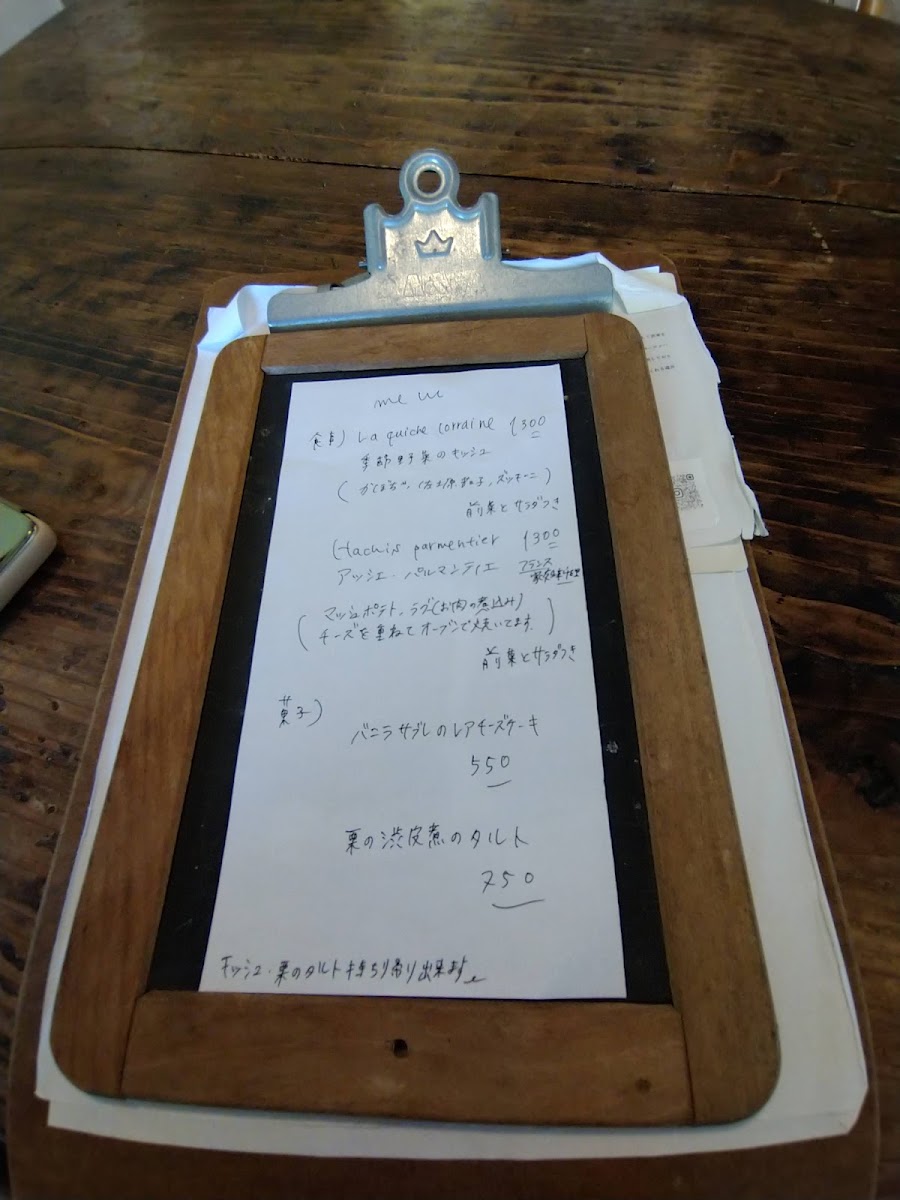 menu
食事) La quiche lorraine 1300
季節野菜のキッシュ
(かぼちゃ、佐土原茄子、ズッキーニ)
前菜とサラダつき
Hachis parmentier 1300
アッシェ・パルマンティエ フランス
家庭料理
(マッシュポテト、ラグー(お肉の煮込み)
チーズを重ねてオーブンで焼いてます。)
前菜とサラダつき
菓子)
バニラサブレのレアチーズケーキ
550
栗の渋皮煮のタルト
750
キッシュ・栗のタルト持ち帰り出来ます